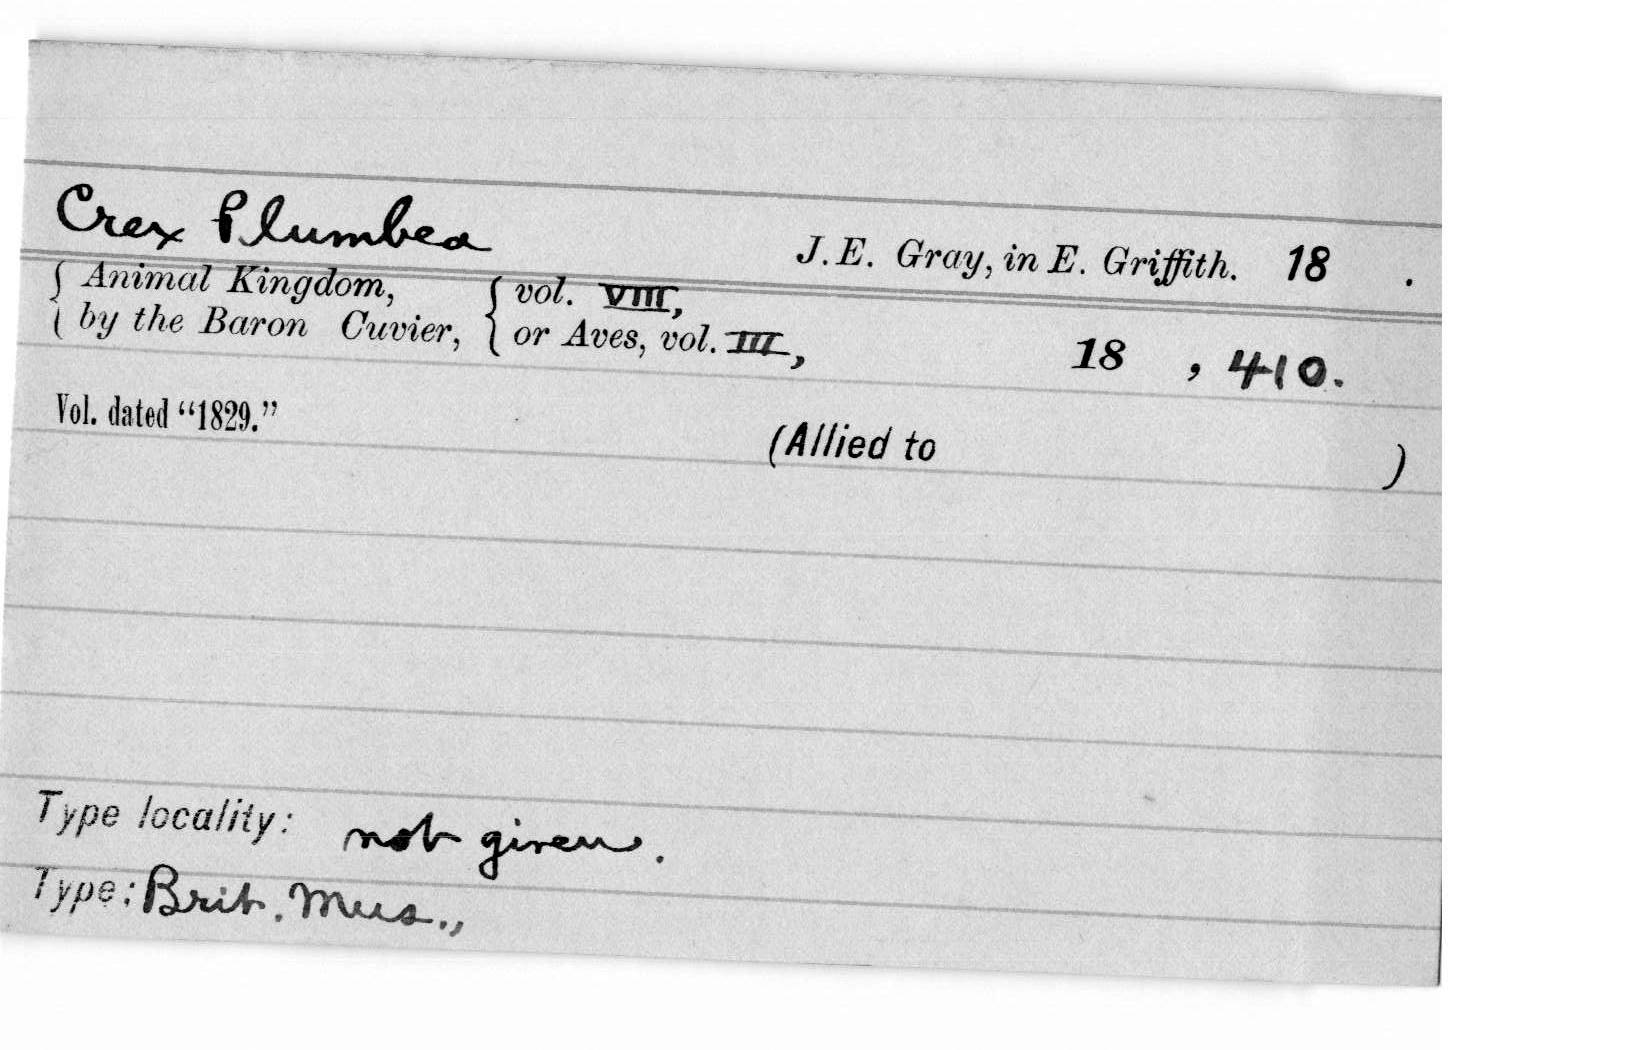 Crex Plumbea
J.E. Gray, in E. Griffith. 18 .
{ Animal Kingdom, { vol. VIII,
{ by the Baron Cuvier, { or Aves, vol. III, 18 , 410.
Vol. dated “1829.”
(Allied to )
Type locality: not given.
Type: Brit. Mus.,